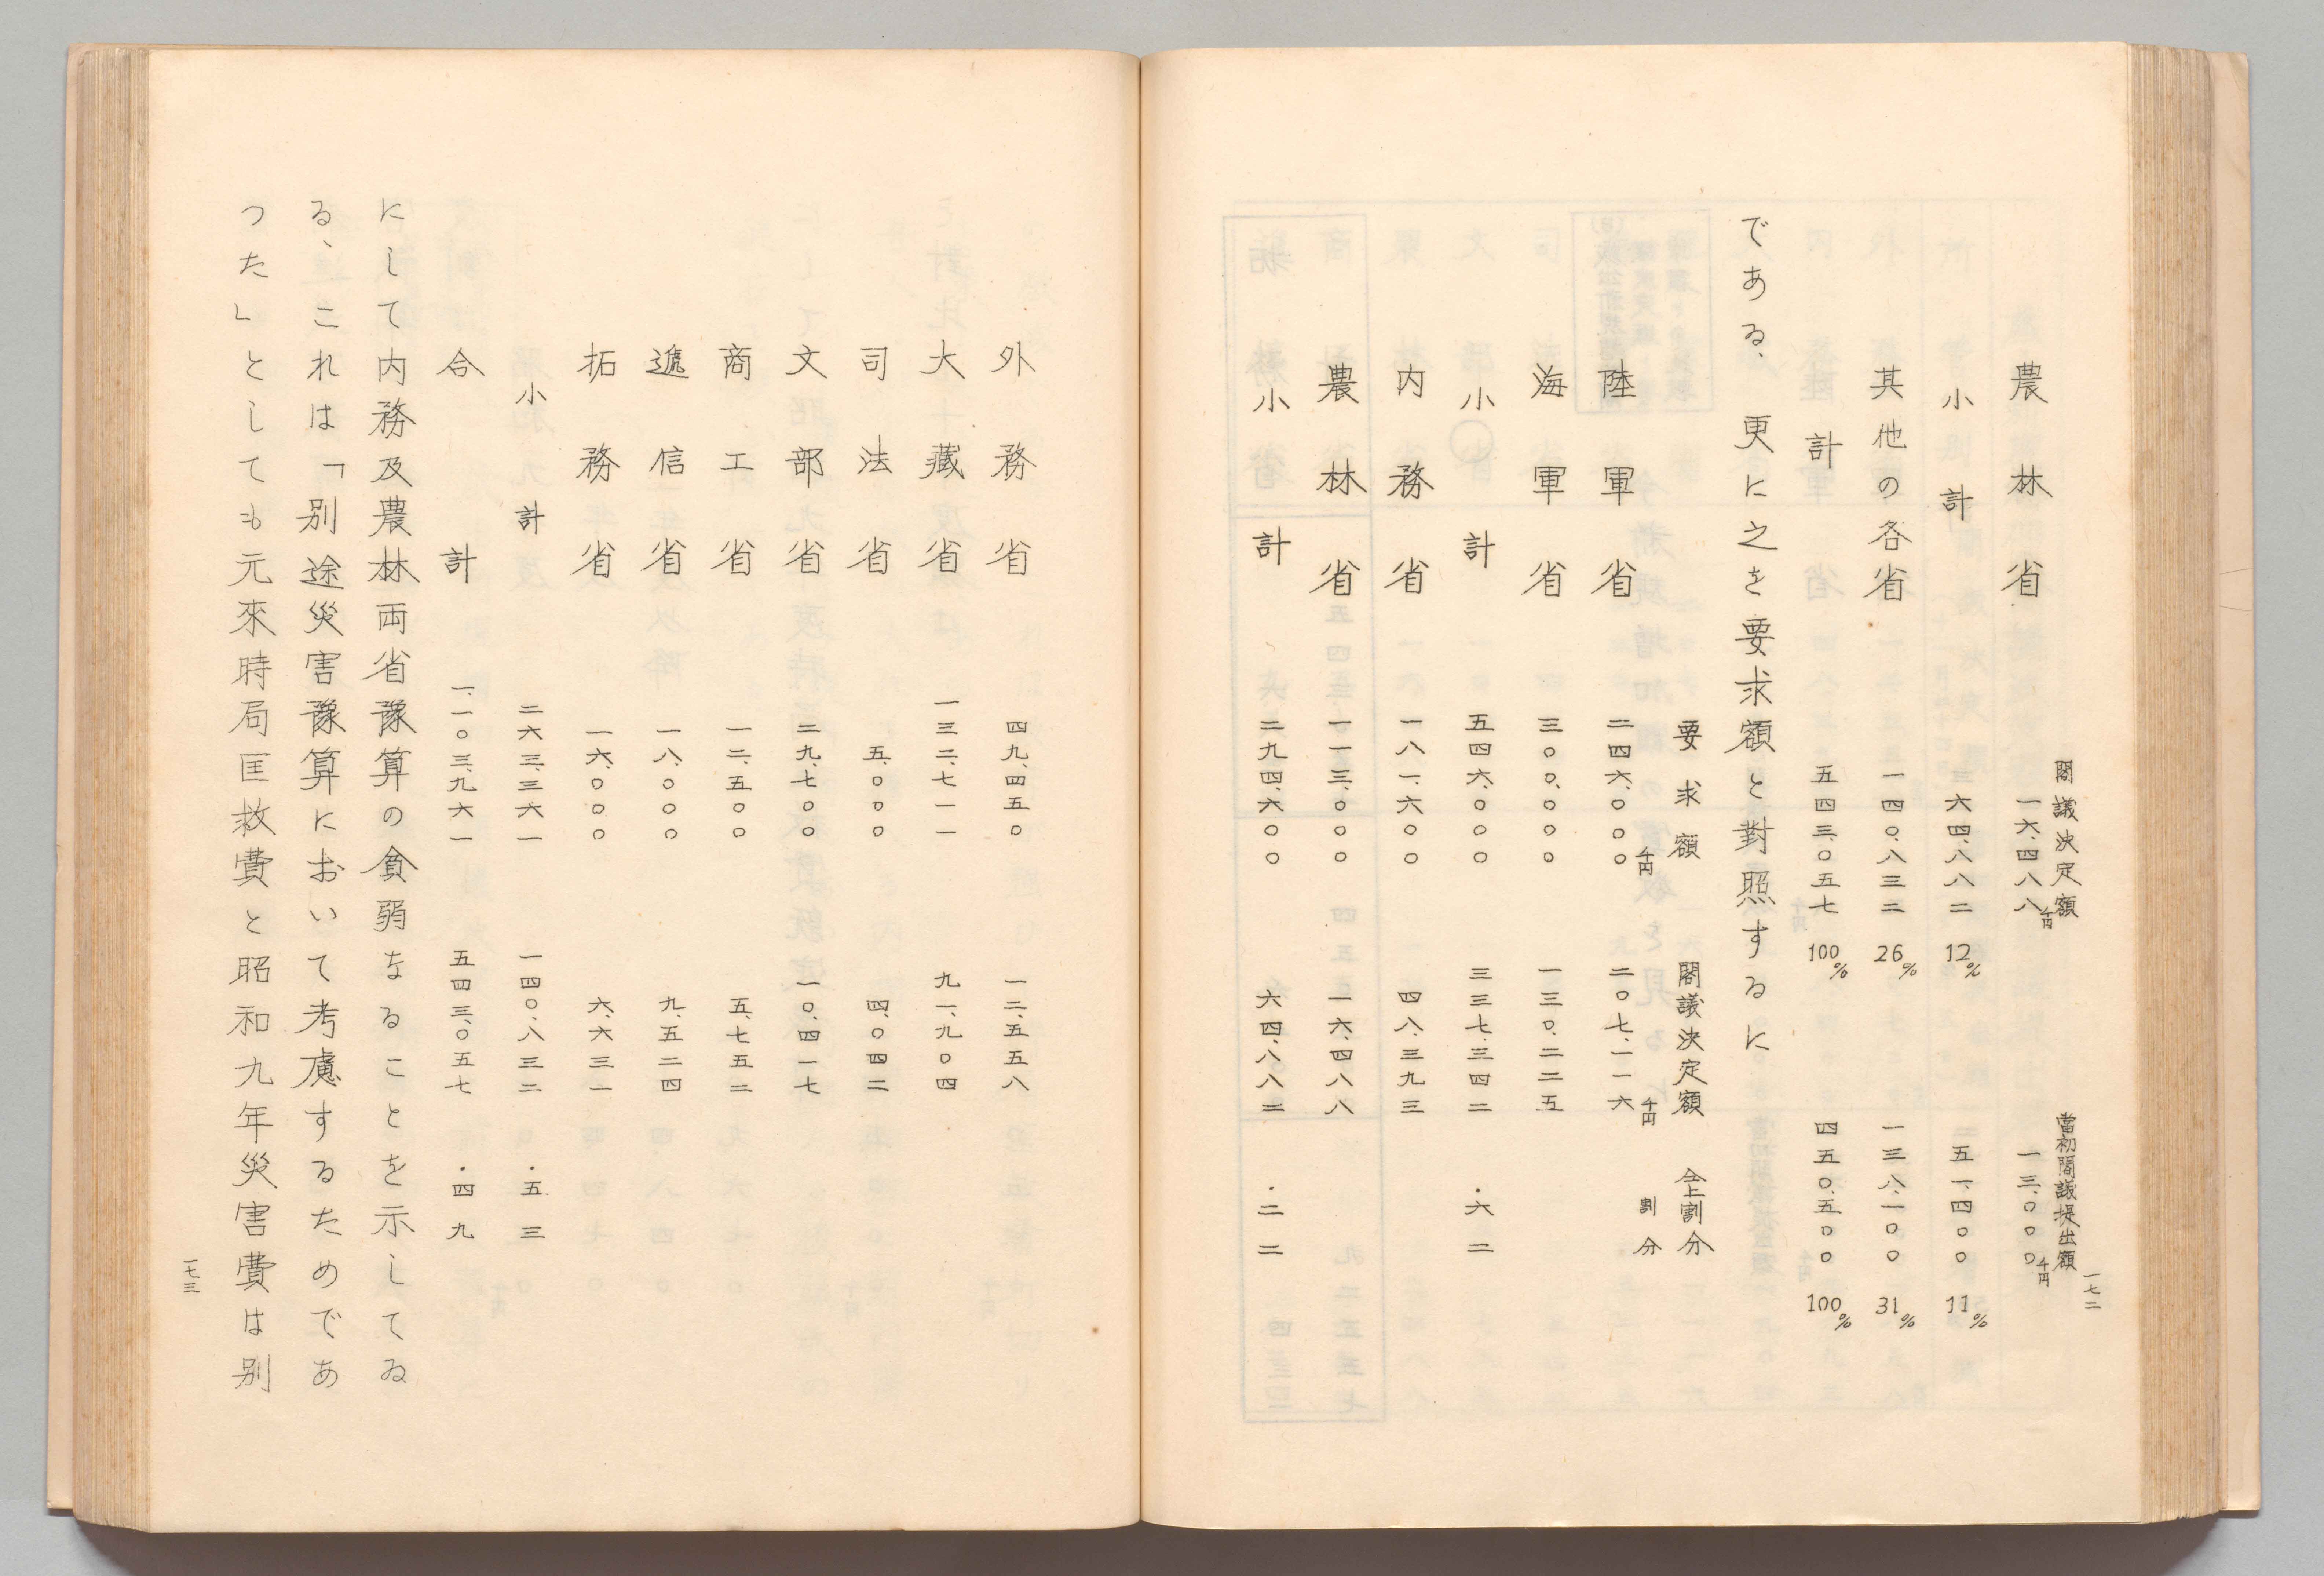 一七二
閣議決定額　當初閣議提出額
農林省　一六、四八八千円　一三、〇〇〇千円
小計　六四、八八二　12%　五一、四〇〇　11%
其他の各省　一四〇、八三二　26%　一三八、一〇〇　31%
計　五四三、〇五七　100%　四五〇、五〇〇　100%
である、更に之を要求額と對照するに
要求額　閣議決定額　仝上割分
千円　千円　割分
陸軍省　二四六、〇〇〇　二〇七、一一六
海軍省　三〇〇、〇〇〇　一三〇、二二五
小計　五四六、〇〇〇　三三七、三四二　・六二
内務省　一八一、六〇〇　四八、三九三
農林省　一一三、〇〇〇　一六、四八八
小計　二九四、六〇〇　六四、八八二　・二二
外務省　四九、四五〇　一二、五五八
大藏省　一三二、七一一　九一、九〇四
司法省　五、〇〇〇　四、〇四二
文部省　二九、七〇〇　一〇、四一七
商工省　一二、五〇〇　五、七五二
遞信省　一八、〇〇〇　九、五二四
拓務省　一六、〇〇〇　六、六三一
小計　二六三、三六一　一四〇、八三二　・五三
合計　一、一〇三、九六一　五四三、〇五七　・四九
にして内務及農林両省豫算の貧弱なることを示してゐ
る、これは「別途災害豫算において考慮するためであ
つた」としても元來時局匡救費と昭和九年災害費は別
一七三